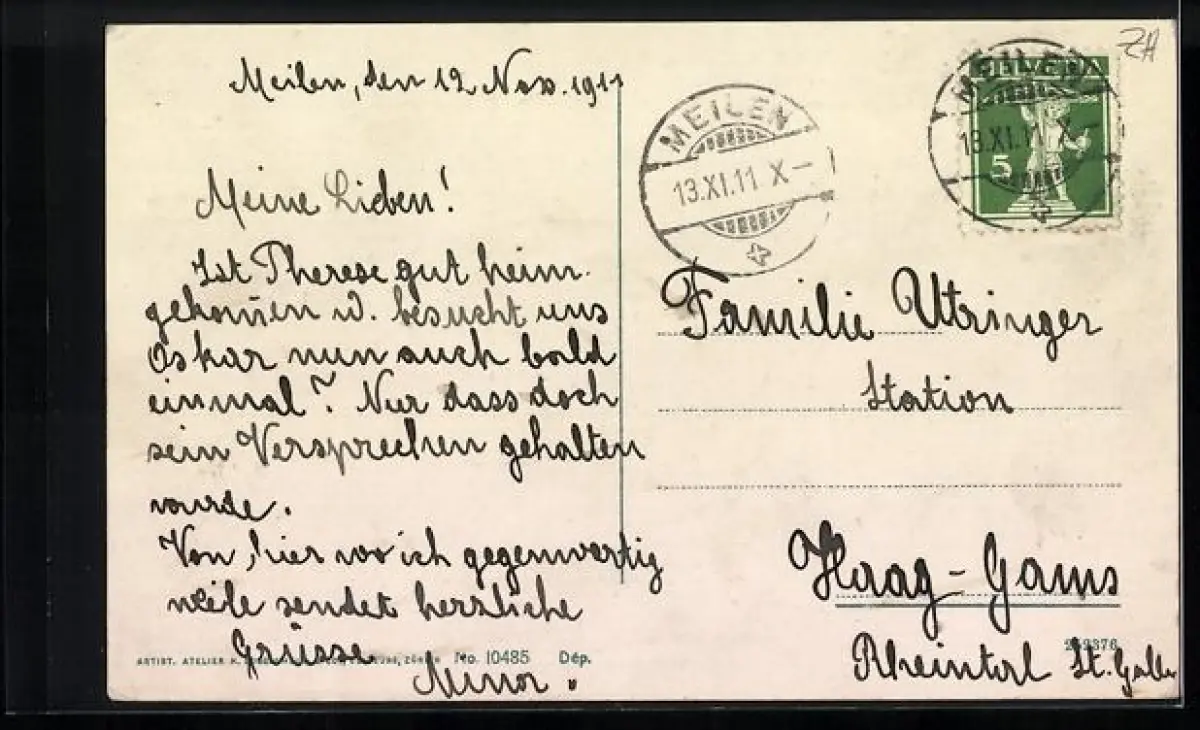 Meilen, den 12. Nov. 1911
Meine Lieben!
Ist Therese gut heim
gekom̄en u. besucht uns
Oskar nun auch bald
einmal? Nur dass doch
sein Versprechen gehalten
wurde.
Von hier wo ich gegenwertig
weile sendet herzliche
Grüsse
ARTIST. ATELIER H. ZÜRICH No. 10485 Dép.
MEILEN
13.XI.11 X–
MEILEN
13.XI.11 X–
5
ZH
Familie Utzinger
Station
Haag-Gams
Rheintal St. Gallen